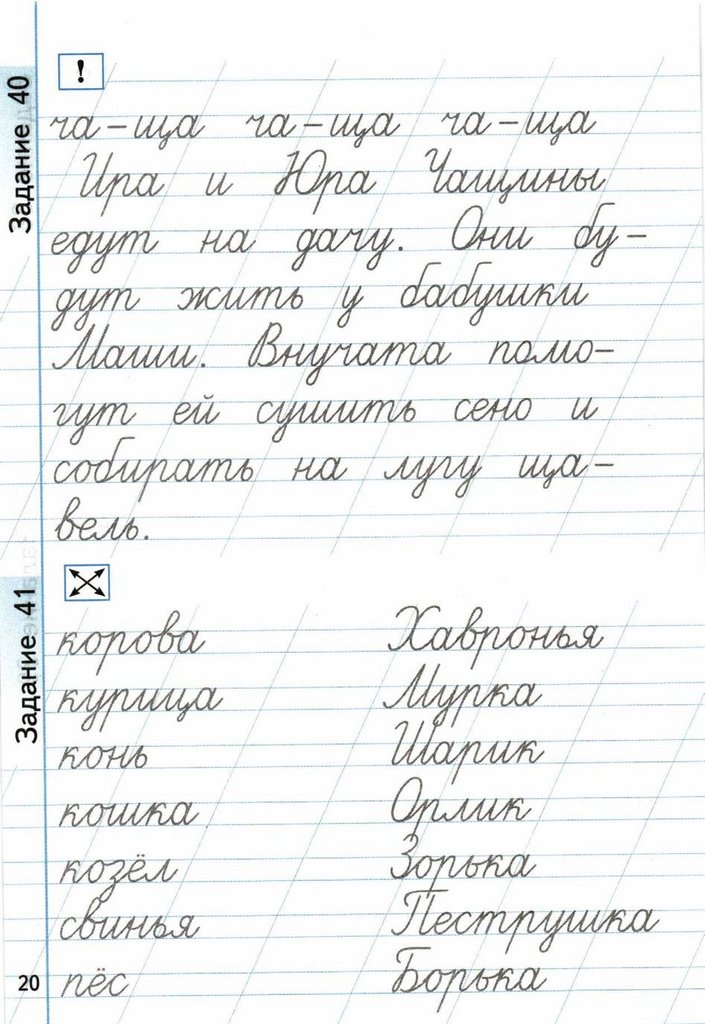 Задание 40
!
ча – ща ча – ща ча – ща
Ира и Юра Чащины
едут на дачу. Они бу –
дут жить у бабушки
Маши. Внучата помо –
гут ей сушить сено и
собирать на лугу ща –
вель.
Задание 41
корова Хавронья
курица Мурка
конь Шарик
кошка Орлик
козёл Зорька
свинья Пеструшка
пёс Борька
20